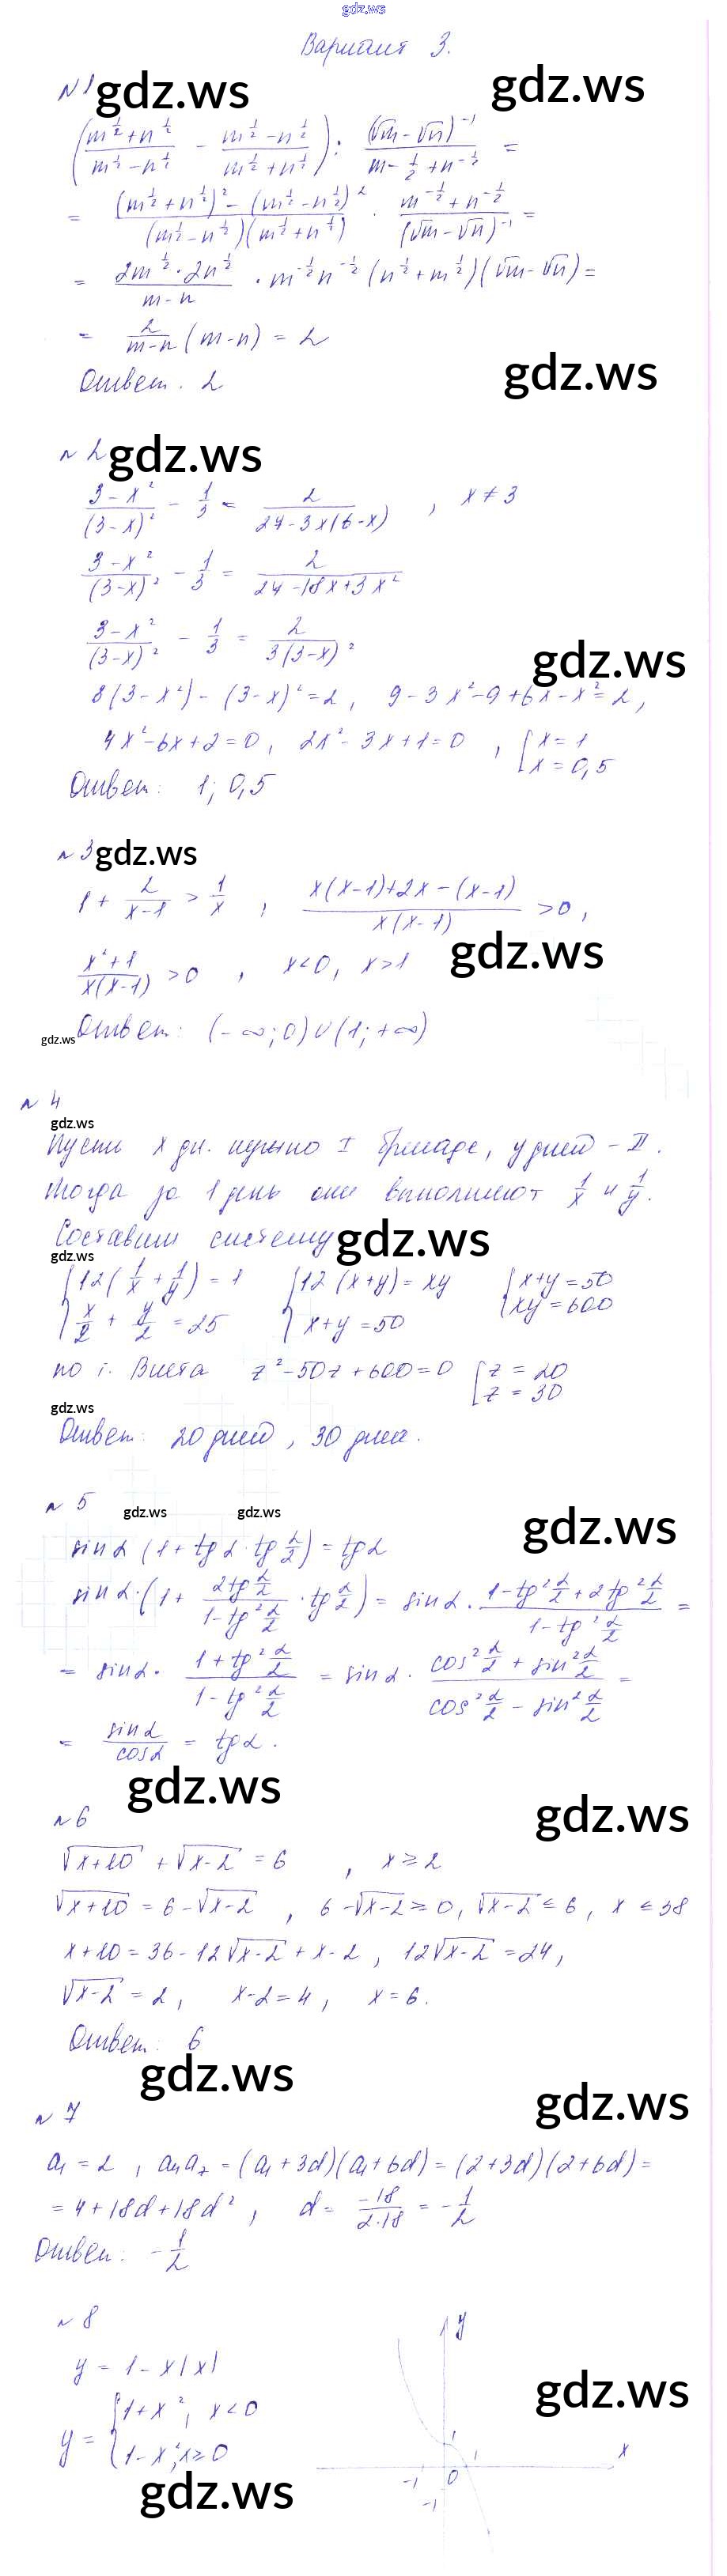 gdz.ws
Вариант 3.
№ 1 gdz.ws gdz.ws
((m^{1/2} + n^{1/2})/(m^{1/2} - n^{1/2}) - (m^{1/2} - n^{1/2})/(m^{1/2} + n^{1/2})) : (√m - √n)^{-1}/(m^{-1/2} + n^{-1/2}) =
= ((m^{1/2} + n^{1/2})^2 - (m^{1/2} - n^{1/2})^2)/((m^{1/2} - n^{1/2})(m^{1/2} + n^{1/2})) · (m^{-1/2} + n^{-1/2})/(√m - √n)^{-1} =
= (2m^{1/2} · 2n^{1/2})/(m - n) · m^{-1/2} n^{-1/2} (n^{1/2} + m^{1/2})(√m - √n) =
= 2/(m-n) (m-n) = 2
Ответ. 2
gdz.ws
№ 2 gdz.ws
(3 - x^2)/(3-x)^2 - 1/3 = 2/(27 - 3x(6-x)) , x ≠ 3
(3 - x^2)/(3-x)^2 - 1/3 = 2/(27 - 18x + 3x^2)
(3 - x^2)/(3-x)^2 - 1/3 = 2/(3(3-x)^2)
gdz.ws
3(3 - x^2) - (3-x)^2 = 2, 9 - 3x^2 - 9 + 6x - x^2 = 2,
4x^2 - 6x + 2 = 0, 2x^2 - 3x + 1 = 0 , [x = 1
x = 0,5
Ответ: 1; 0,5
№ 3 gdz.ws
1 + 2/(x-1) > 1/x , (x(x-1) + 2x - (x-1))/(x(x-1)) > 0 ,
gdz.ws
(x^2 + 1)/(x(x-1)) > 0 , x < 0, x > 1
gdz.ws Ответ: (-∞; 0) ∪ (1; +∞)
№ 4
gdz.ws
Пусть x дн. нужно I бригаде, y дней - II.
Тогда за 1 день они выполняют 1/x и 1/y.
Составим систему gdz.ws
gdz.ws
{12(1/x + 1/y) = 1 {12(x+y) = xy {x+y = 50
x/2 + y/2 = 25 x + y = 50 xy = 600
по т. Виета z^2 - 50z + 600 = 0 [z = 20
z = 30
gdz.ws
Ответ: 20 дней, 30 дней.
№ 5 gdz.ws gdz.ws gdz.ws
sin α (1 + tg α · tg α/2) = tg α
sin α · (1 + (2tg α/2)/(1 - tg^2 α/2) · tg α/2) = sin α · (1 - tg^2 α/2 + 2tg^2 α/2)/(1 - tg^2 α/2) =
= sin α · (1 + tg^2 α/2)/(1 - tg^2 α/2) = sin α · (cos^2 α/2 + sin^2 α/2)/(cos^2 α/2 - sin^2 α/2) =
= sin α/cos α = tg α.
gdz.ws
№ 6 gdz.ws
√(x+10) + √(x-2) = 6 , x ≥ 2
√(x+10) = 6 - √(x-2) , 6 - √(x-2) ≥ 0, √(x-2) ≤ 6, x ≤ 38
x + 10 = 36 - 12√(x-2) + x - 2, 12√(x-2) = 24,
√(x-2) = 2, x - 2 = 4, x = 6.
Ответ: 6
gdz.ws
№ 7 gdz.ws
a₁ = 2 , a₄a₇ = (a₁ + 3d)(a₁ + 6d) = (2+3d)(2+6d) =
= 4 + 18d + 18d^2 , d = -18/(2·18) = -1/2
Ответ: -1/2
№ 8
y
y = 1 - x|x|
gdz.ws
y = {1 + x^2, x < 0
1 - x^2, x ≥ 0
1
1
x
-1
0
-1
gdz.ws